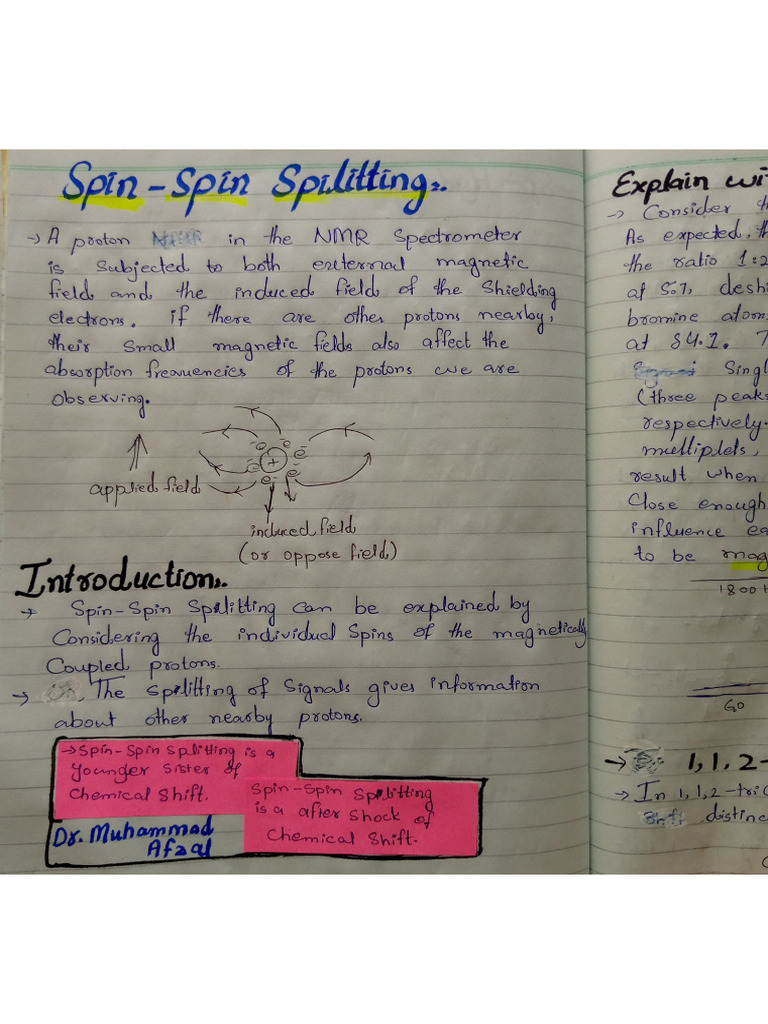 Spin-Spin Spilitting:.
→ A proton in the NMR Spectrometer
is Subjected to both external magnetic
field and the induced field of the Shielding
electrons. if there are other protons nearby,
their small magnetic fields also affect the
absorption freuuencies of the protons we are
observing.
applied field
induced field
(or oppose field)
Introduction:.
→ Spin-Spin Spilitting can be explained by
Considering the individual Spins of the magnetically
Coupled protons.
→ The Spilitting of Signals gives information
about other nearby protons.
→ Spin-Spin Splitting is a
younger sister of
Chemical Shift.
Spin-Spin Splitting
is a after shock of
Chemical Shift.
Dr. Muhammad
Afzal
Explain
→ Consider
As expected,
the ratio 1:2
at 5.7,
bromine
at δ4.1.
(three peaks
respectively.
multiplets,
result when
Close enough
influence
to be
1800
60
→ 1,1,2-
→ In 1,1,2-